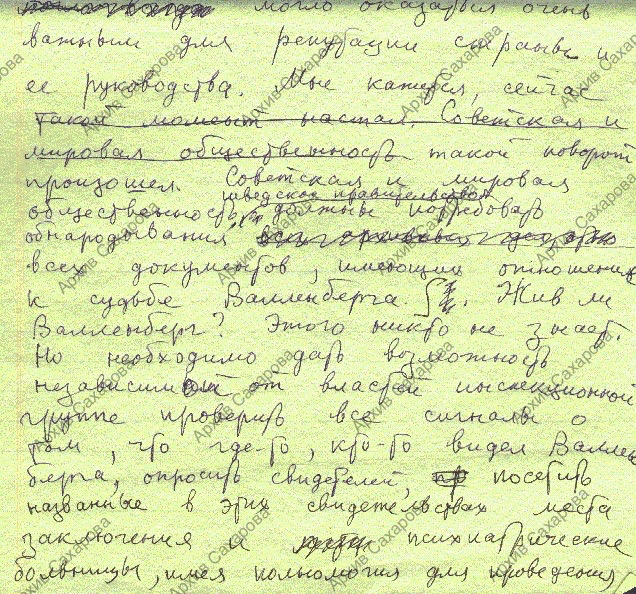 могло оказаться очень
важным для репутации страны и
ее руководства. Мне кажется, сейчас
такой момент настал. Советская и
мировая общественность такой поворот
произошел. Советская и мировая
шведское правительство
общественность, и должны потребовать
обнародования
всех документов, имеющих отношение
к судьбе Валленберга. Жив ли
Валленберг? Этого никто не знает.
Но необходимо дать возможность
независимой от властей инспекционной
группе проверить все сигналы о
том, что где-то, кто-то видел Валлен
берга, опросить свидетелей, посетить
названные в этих свидетельствах места
заключения и психиатрические
больницы, имея полномочия для проведения
Архив Сахарова